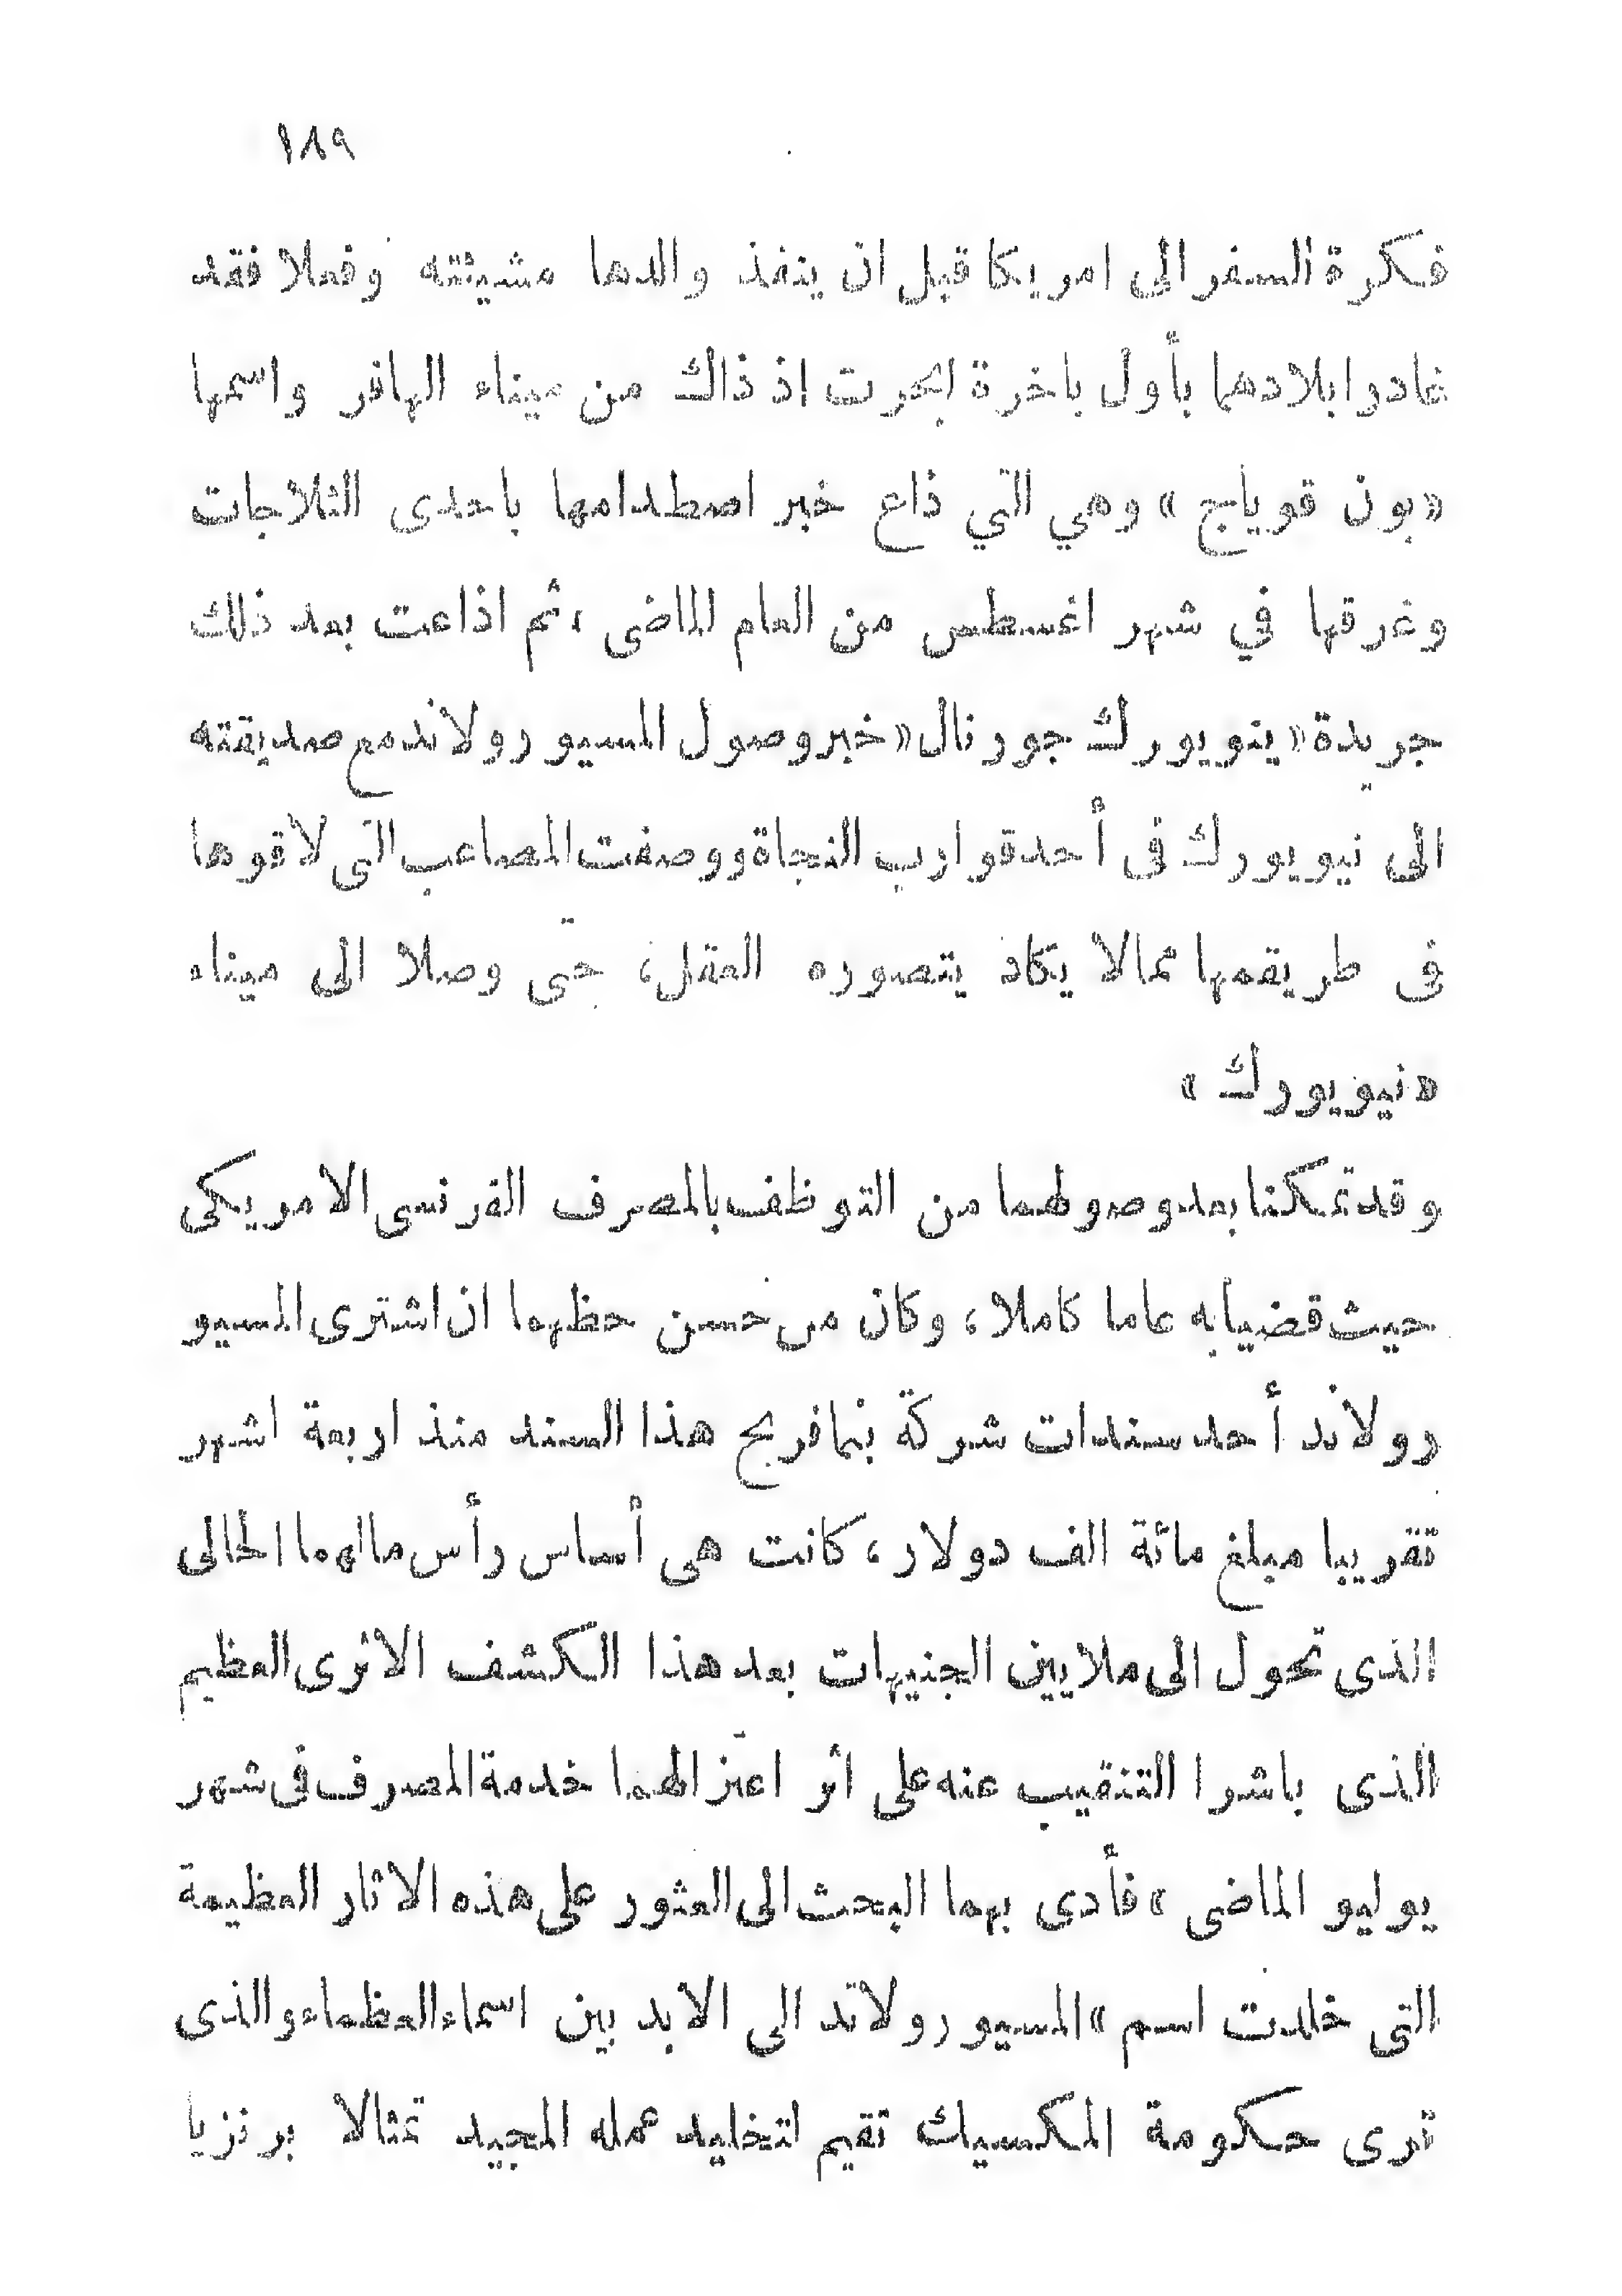 ١٨٩
فكرة السفر الى امريكا قبل ان ينفذ والدها مشيئته وفعلا فقد
غادوا بلادهما بأول باخرة ابحرت إذ ذاك من ميناء الهافر واسمها
«بون فوياج» وهي التي ذاع خبر اصطدامها باحدى الثلاجات
وغرقها في شهر اغسطس من العام الماضى ، ثم اذاعت بعد ذلك
جريدة «ينويورك جورنال« خبر وصول المسيو رولاند مع صديقته
الى نيويورك فى أحد قوارب النجاة ووصفت المصاعب التى لاقوها
فى طريقهما ممالا يكاد يتصوره العقل، حتى وصلا الى ميناء
«نيويورك»
وقد تمكنا بعد وصولهما من التوظف بالمصرف الفرنسى الامريكى
حيث قضيا به عاما كاملا، وكان من حسن حظهما ان اشترى المسيو
رولاند أحد سندات شركة بنما فربح هذا السند منذ اربعة اشهر
تقريبا مبلغ مائة الف دولار، كانت هى أساس رأس مالهما الحالى
الذى تحول الى ملايين الجنيهات بعد هذا الكشف الاثرى العظيم
الذى باشروا التنقيب عنه على اثر اعتزالهما خدمة المصرف فى شهر
يوليو الماضى » فأدى بهما البحث الى العثور على هذه الاثار العظيمة
التى خلدت اسم »المسيو رولاند الى الابد بين اسماء العظماء والذى
ترى حكومة المكسيك تقيم لتخليد عمله المجيد تمثالا برنزيا